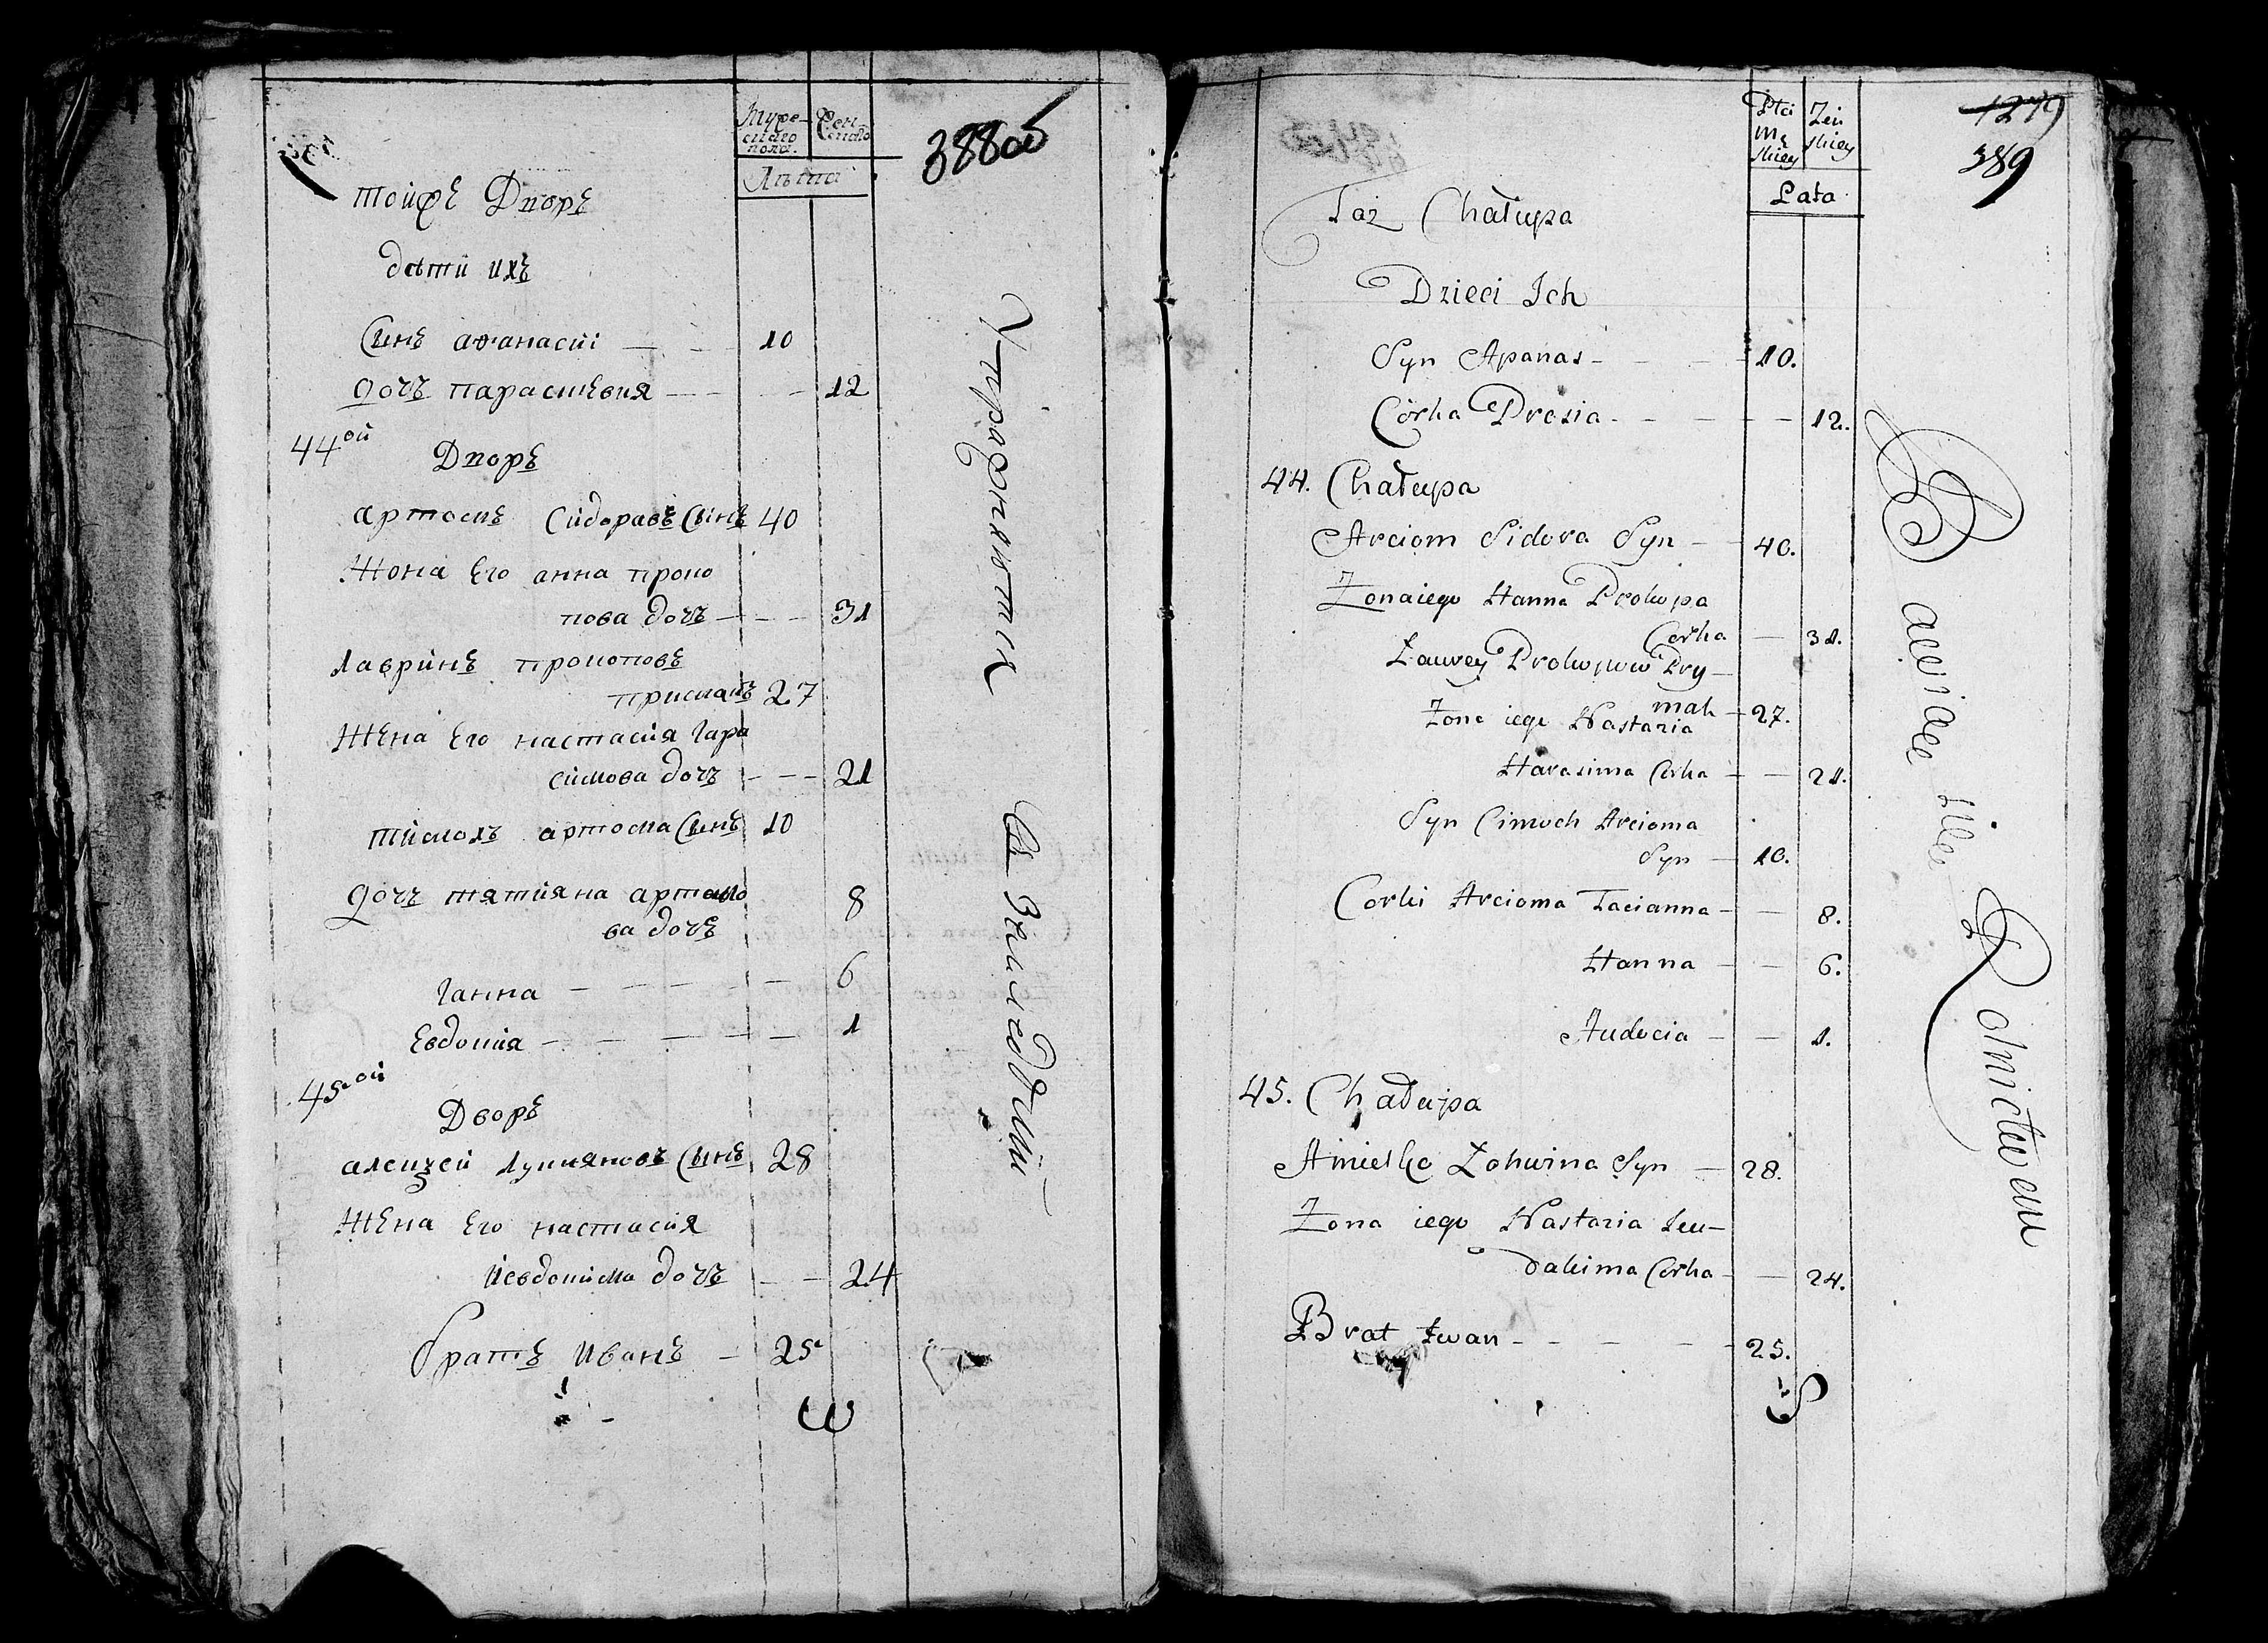 Муже-
скаго
пола.
Жен-
скаго
Лѣта
388об
тойже Дворъ
дѣти ихъ
Сынъ афанасии — — 10
дочь параскевия — — — 12
44ои
Дворъ
артомъ Сидоравъ Сынъ 40
Жона Его анна проко
пова дочь — — — 31
лавринъ прокоповъ
примакъ 27
Жена Его настасия Гара
симова дочь — — — 21
тимохъ артома Сынъ 10
дочь тятияна артомо
ва дочь 8
Ганна — — — — — 6
Евдокия — — — — — 1
45ои
Дворъ
алексей лукияновъ Сынъ 28
Жена Его настасия
Иевдокима дочь — — 24
братъ Иванъ — 25
Упражняются
въ Земледелии
Płci
Mę
skiey
Żeń
skiey
Lata
1279
389
Taż Chałupa
Dzieci Ich
Syn Apanas — — — 10.
Córka Prosia — — — — 12.
44. Chałupa
Arciom Sidora Syn — 40.
Żona iego Hanna Prokopa
Corka — 31.
Ławrey Prokopow Pry-
mak — 27.
Żona iego Nastazia
Harasima Corka — — 21.
Syn Cimoch Arcioma
Syn — 10.
Corki Arcioma Tacianna — — 8.
Hanna — — 6.
Audocia — — 1.
45. Chałupa
Amelko Łohwina Syn — 28.
Żona iego Nastazia Jeu-
dakima Corka — — 24.
Brat Iwan — — — — 25.
Bawiące się Rolnictwem